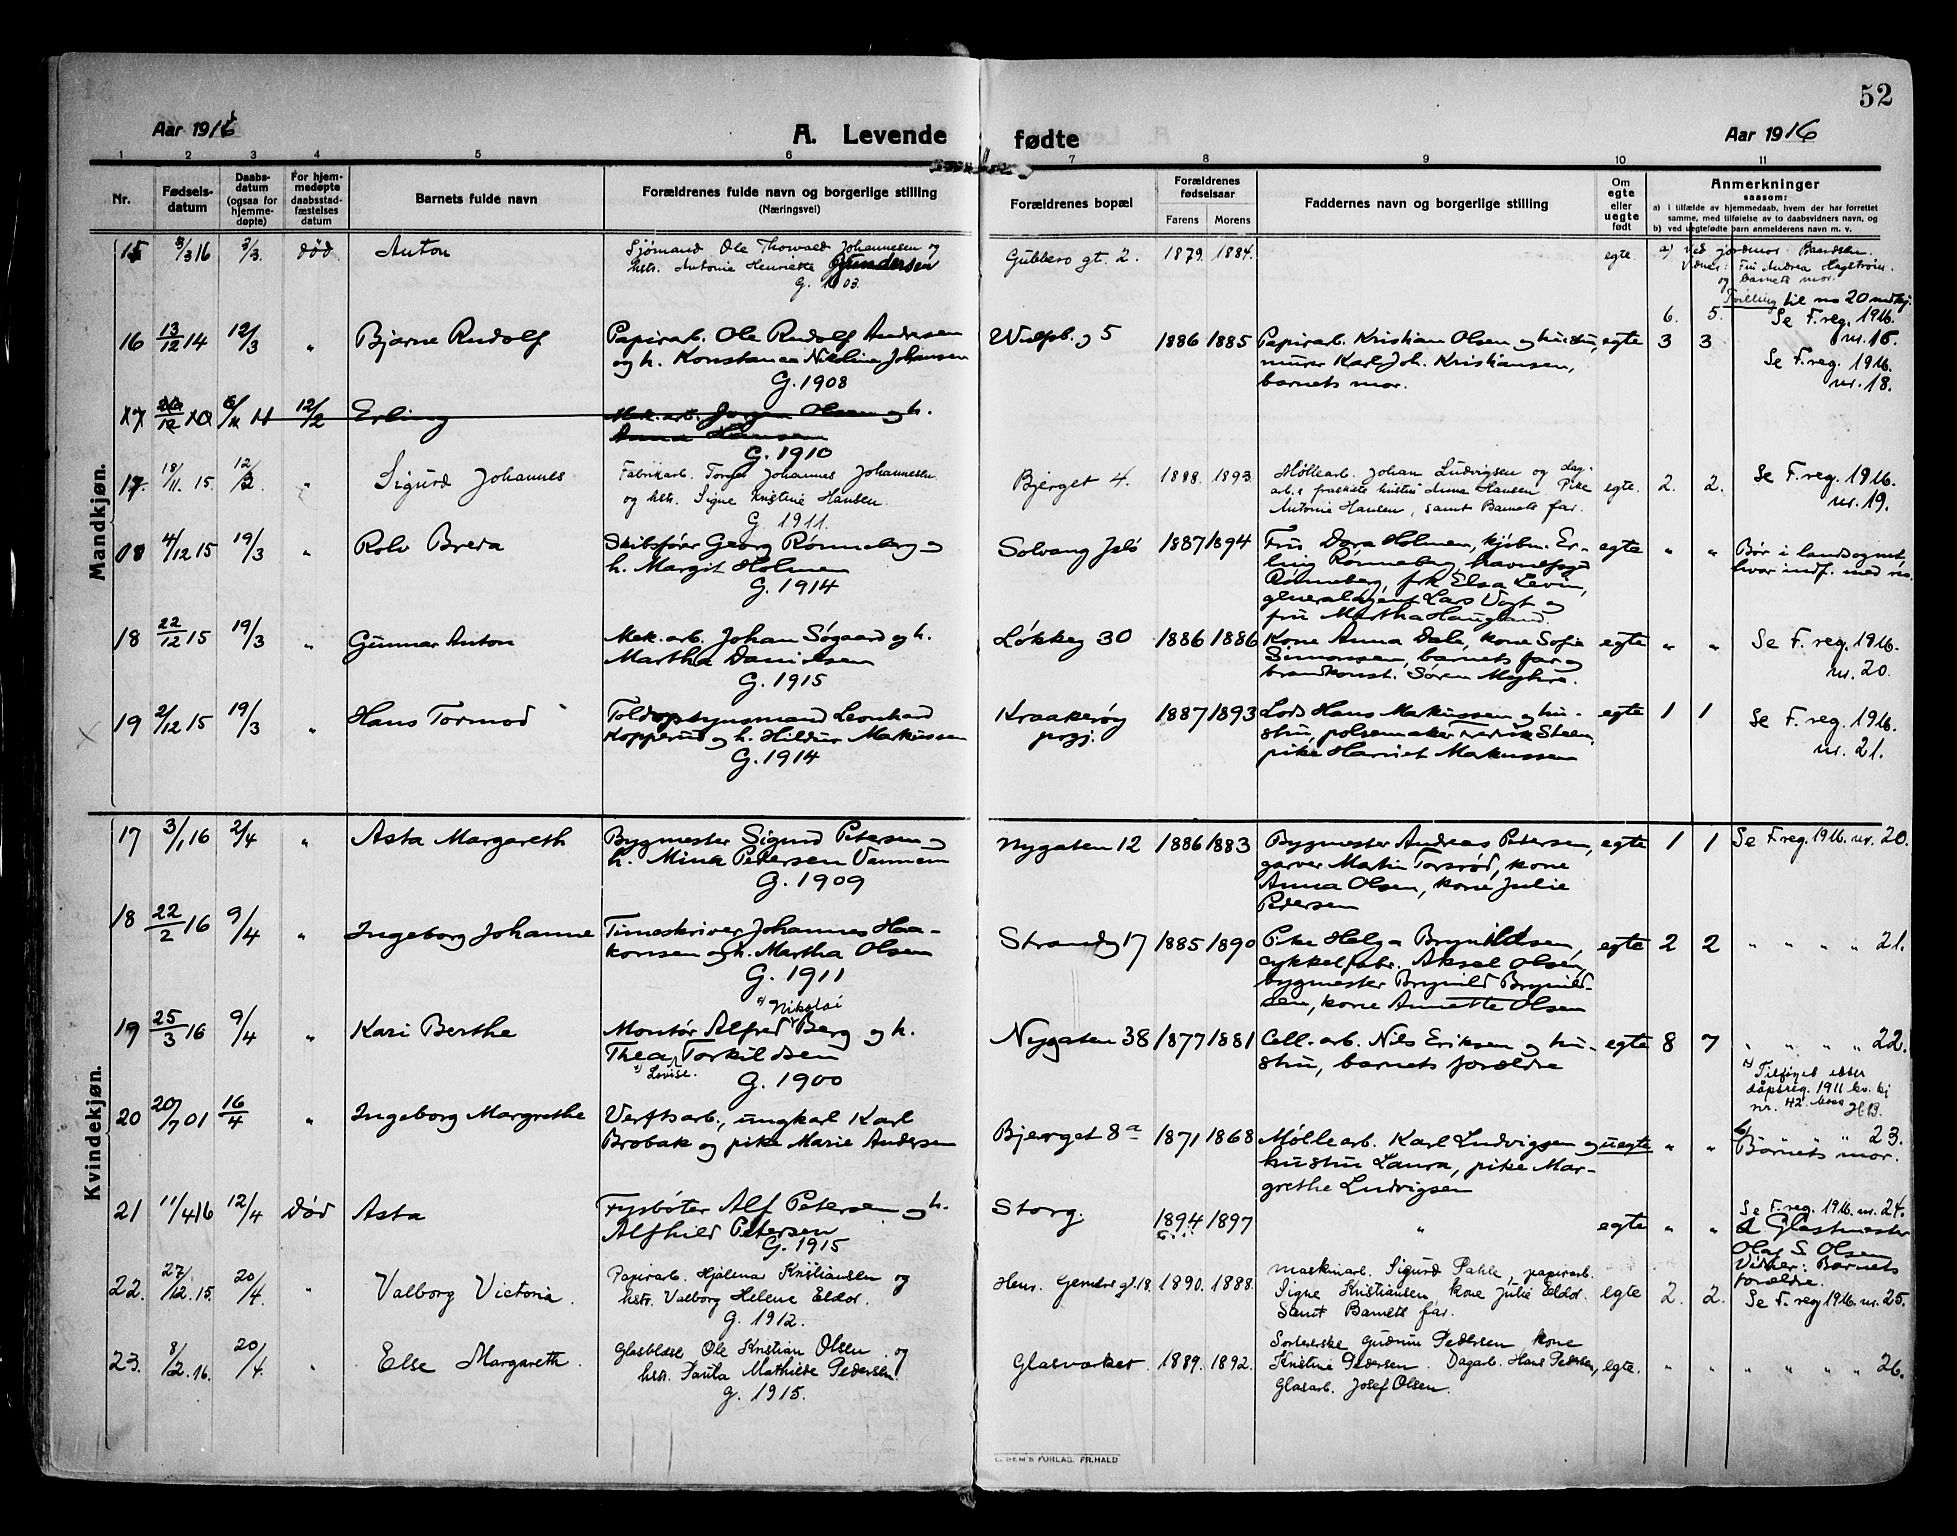 52
Aar 1916
A. Levende fødte
Aar 1916
1 2 3 4 5 6 7 8 9 10 11
Nr.
Fødsels-
datum
Daabs-
datum
(ogsaa for
hjemme-
døpte)
For hjem-
medøpte
daabsstad-
fæstelses
datum
Barnets fulde navn
Forældrenes fulde navn og borgerlige stilling
(Næringsvei)
Forældrenes bopæl
Forældrenes
fødselsaar
Farens Morens
Faddernes navn og borgerlige stilling
Om
egte
eller
uegte
født
Anmerkninger
saasom:
a) i tilfælde av hjemmedaab, hvem der har forrettet
samme, med tilføielse av to daabsvidners navn, og
b) ved uegtefødte barn anmelderens navn m. v.
Mandkjøn.
15 3/3 16 3/3. død Anton
Sjømand Ole Thorvald Johannesen og
hstr. Antonie Henriette Gundersen
G. 1903.
Gubbero gt. 2. 1879. 1884. egte.
a) Ved jordmor Baardsen.
Vidner: Fru Andrea Hagstrøm.
og barnets mor.
Tvilling til no 20 mdkj.
6. 5. Se F. reg. 1916.
nr. 15.
16 13/12 14 12/3 " Bjarne Rudolf
Papirarb. Ole Rudolf Andresen
og h. Konstance Nikoline Johansen
G. 1908
Wulfsb.g 5 1886 1885
Papirarb. Kristian Olsen og hustru,
murer Karl Joh. Kristiansen,
barnets mor.
egte 3 3
Se F. reg. 1916.
nr. 18.
17 12/2 Erling
Mek. arb. Jørgen Olsen og h.
Anna Hansen
G. 1910
17. 18/11. 15. 12/3. " Sigurd Johannes
Fabrikarb. Torger Johannes Johannesen
og hstr. Signe Kristine Hansen.
G. 1911.
Bjerget 4. 1888. 1893.
Møllearb. Johan Ludvigsen og dag-
arb.s fraskilte hustru Anna Hansen. Pike
Antonie Hansen, samt Barnets far.
egte. 2. 2.
Se F. reg. 1916.
nr. 19.
4/12 15 19/3 " Rolv Breda
Skibsfører Georg Rønneberg og
h. Margit Holmen
G. 1914
Solvang Jelø 1887 1894
Fru Dora Holmen, kjøbm. Er-
ling Rønneberg, havnefogd
Rønneberg, frk Elsa Levin,
generalagent Lars Vogt og
fru Martha Haugland.
egte " "
Bor i landsognet,
hvor indf. med no.
18 22/12 15 19/3 " Gunnar Anton
Mek. arb. Johan Søgaard og h.
Martha Danielsen
G. 1915
Løkkeg 30 1886 1886
Kone Anna Dale, kone Sofie
Simonsen, barnets far og
brandkonst. Søren Myhre.
egte " "
Se F. reg. 1916.
nr. 20.
19 2/12 15 19/3 " Hans Tormod
Toldopsynsmand Leonhard
Kopperud og h. Hildur Markussen
G. 1914
Kraakerøy
prgj. 1887 1893
Lods Hans Markussen og hu-
stru, pølsemaker Fredrik Steen,
pike Harriet Markussen
egte 1 1
Se F. reg. 1916.
nr. 21.
Kvindekjøn.
17 3/1 16 2/4 " Asta Margareth
Bygmester Sigurd Petersen og
h. Mina Petersen Vannem
G. 1909
Nygaten 12 1886 1883
Bygmester Andreas Petersen,
garver Martin Torsrød, kone
Anna Olsen, kone Julie
Pedersen
egte 1 1 Se F. reg. 1916. nr. 20.
18 22/2 16 9/4 " Ingeborg Johanne
Timeskriver Johannes Haa-
konsen og h. Martha Olsen
G. 1911
Strandg 17 1885 1890
Pike Helga Brynildsen,
cykkelfabr. Aksel Olsen,
bygmester Brynild Brynild-
sen, kone Annette Olsen
egte 2 2 " " " " 21.
19 25/3 16 9/4 " Kari Berthe
x) Nikolai
Montør Alfred Berg og h.
Thea Torkildsen
x) Lovise.
G. 1900
Nygaten 38 1877 1881
Cell. arb. Nils Eriksen og hu-
stru, barnets forældre
egte 8 7 " " " " 22.
x) Tilføyet etter
dåpsreg. 1911 kv. kj
nr. 42. Moss
20 20/7 01 16/4 " Ingeborg Margrethe
Verftsarb., ungkar Karl
Brobak og pike Marie Andersen
Bjerget 8a 1871 1868
Møllearb. Karl Ludvigsen og
hustru Laura, pike Mar-
grethe Ludvigsen
uegte " " " " 23.
b) Barnets mor.
21 11/4 16 12/4 Død Asta
Fyrbøter Alf Petersen og h.
Alfhild Petersen
G. 1915
Storg. 1894 1897 " egte " "
Se F. reg. 1916. nr. 24.
a Glasmester
Olaf S. Olsen
Vidner: Barnets
forældre.
22. 27/12. 15. 20/4. " Valborg Victoria.
Papirarb. Hjalmar Kristiansen og
hstr. Valborg Helene Eldor.
G. 1912.
Henr. Gerners gt. 18. 1890. 1888.
Maskinarb. Sigurd Dahle, papirarb.
Signe Kristiansen, kone Julie Eldor.
Samt Barnets far.
egte 2. 2. Se F. reg 1916. nr. 25.
23. 8/2. 16. 20/4. " Else Margareth.
Glasblæser Ole Kristian Olsen og
hstr. Paula Mathilde Pedersen.
G. 1915.
Glasverket 1889. 1892.
Sorterske Gudrun Pedersen kone
Kristine Pedersen. Dagarb. Hans Pedersen,
Glasarb. Josef Olsen.
egte. " " " " " " 26.
SEM'S FORLAG. FR.HALD